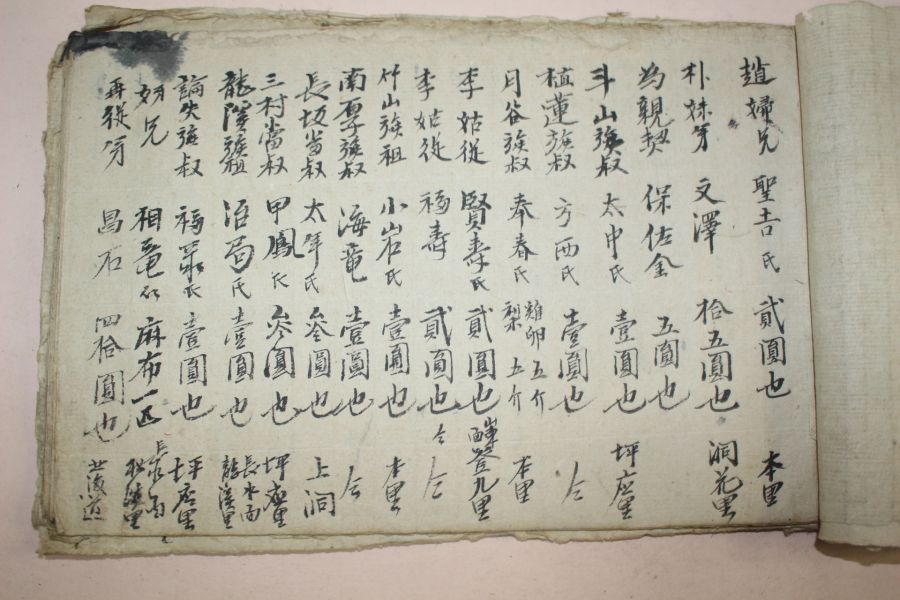 趙婦兄 聖吉氏 貳圓也 本里
朴妹弟 文澤 拾五圓也 洞花里
為親契 保佐金 五圓也
斗山族叔 太中氏 壹圓也 坪庄里
植蓮族叔 方西氏 壹圓也 仝
月谷族叔 奉春氏 鷄卵五介 梨五介 本里
李姑從 賢壽氏 貳圓也 登九里
李姑從 福壽 貳圓也 仝 仝
竹山族祖 小岩氏 壹圓也 本里
南 族叔 海竜 壹圓也 仝
長坂當叔 太 氏 參圓也 上洞
三村當叔 甲鳳氏 參圓也 坪庄里
龍 族祖 氏 壹圓也 長水面 龍溪里
論失族叔 福 氏 壹圓也 坪庄里
妨兄 相竜氏 麻布一匹 長水面 里
再從弟 昌石 四拾圓也